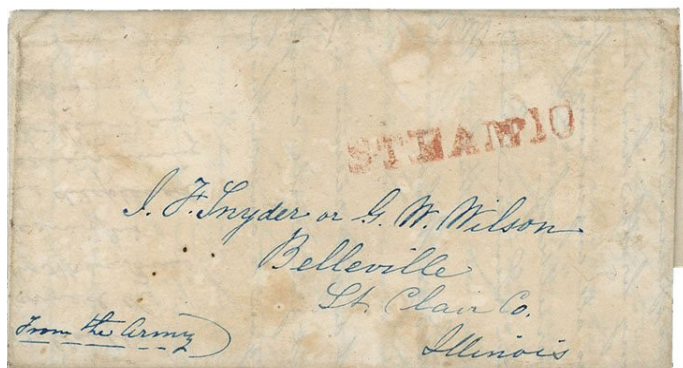 STEAM 10
J. F. Snyder or G. W. Wilson
Belleville
St. Clair Co.
Illinois
From the Army